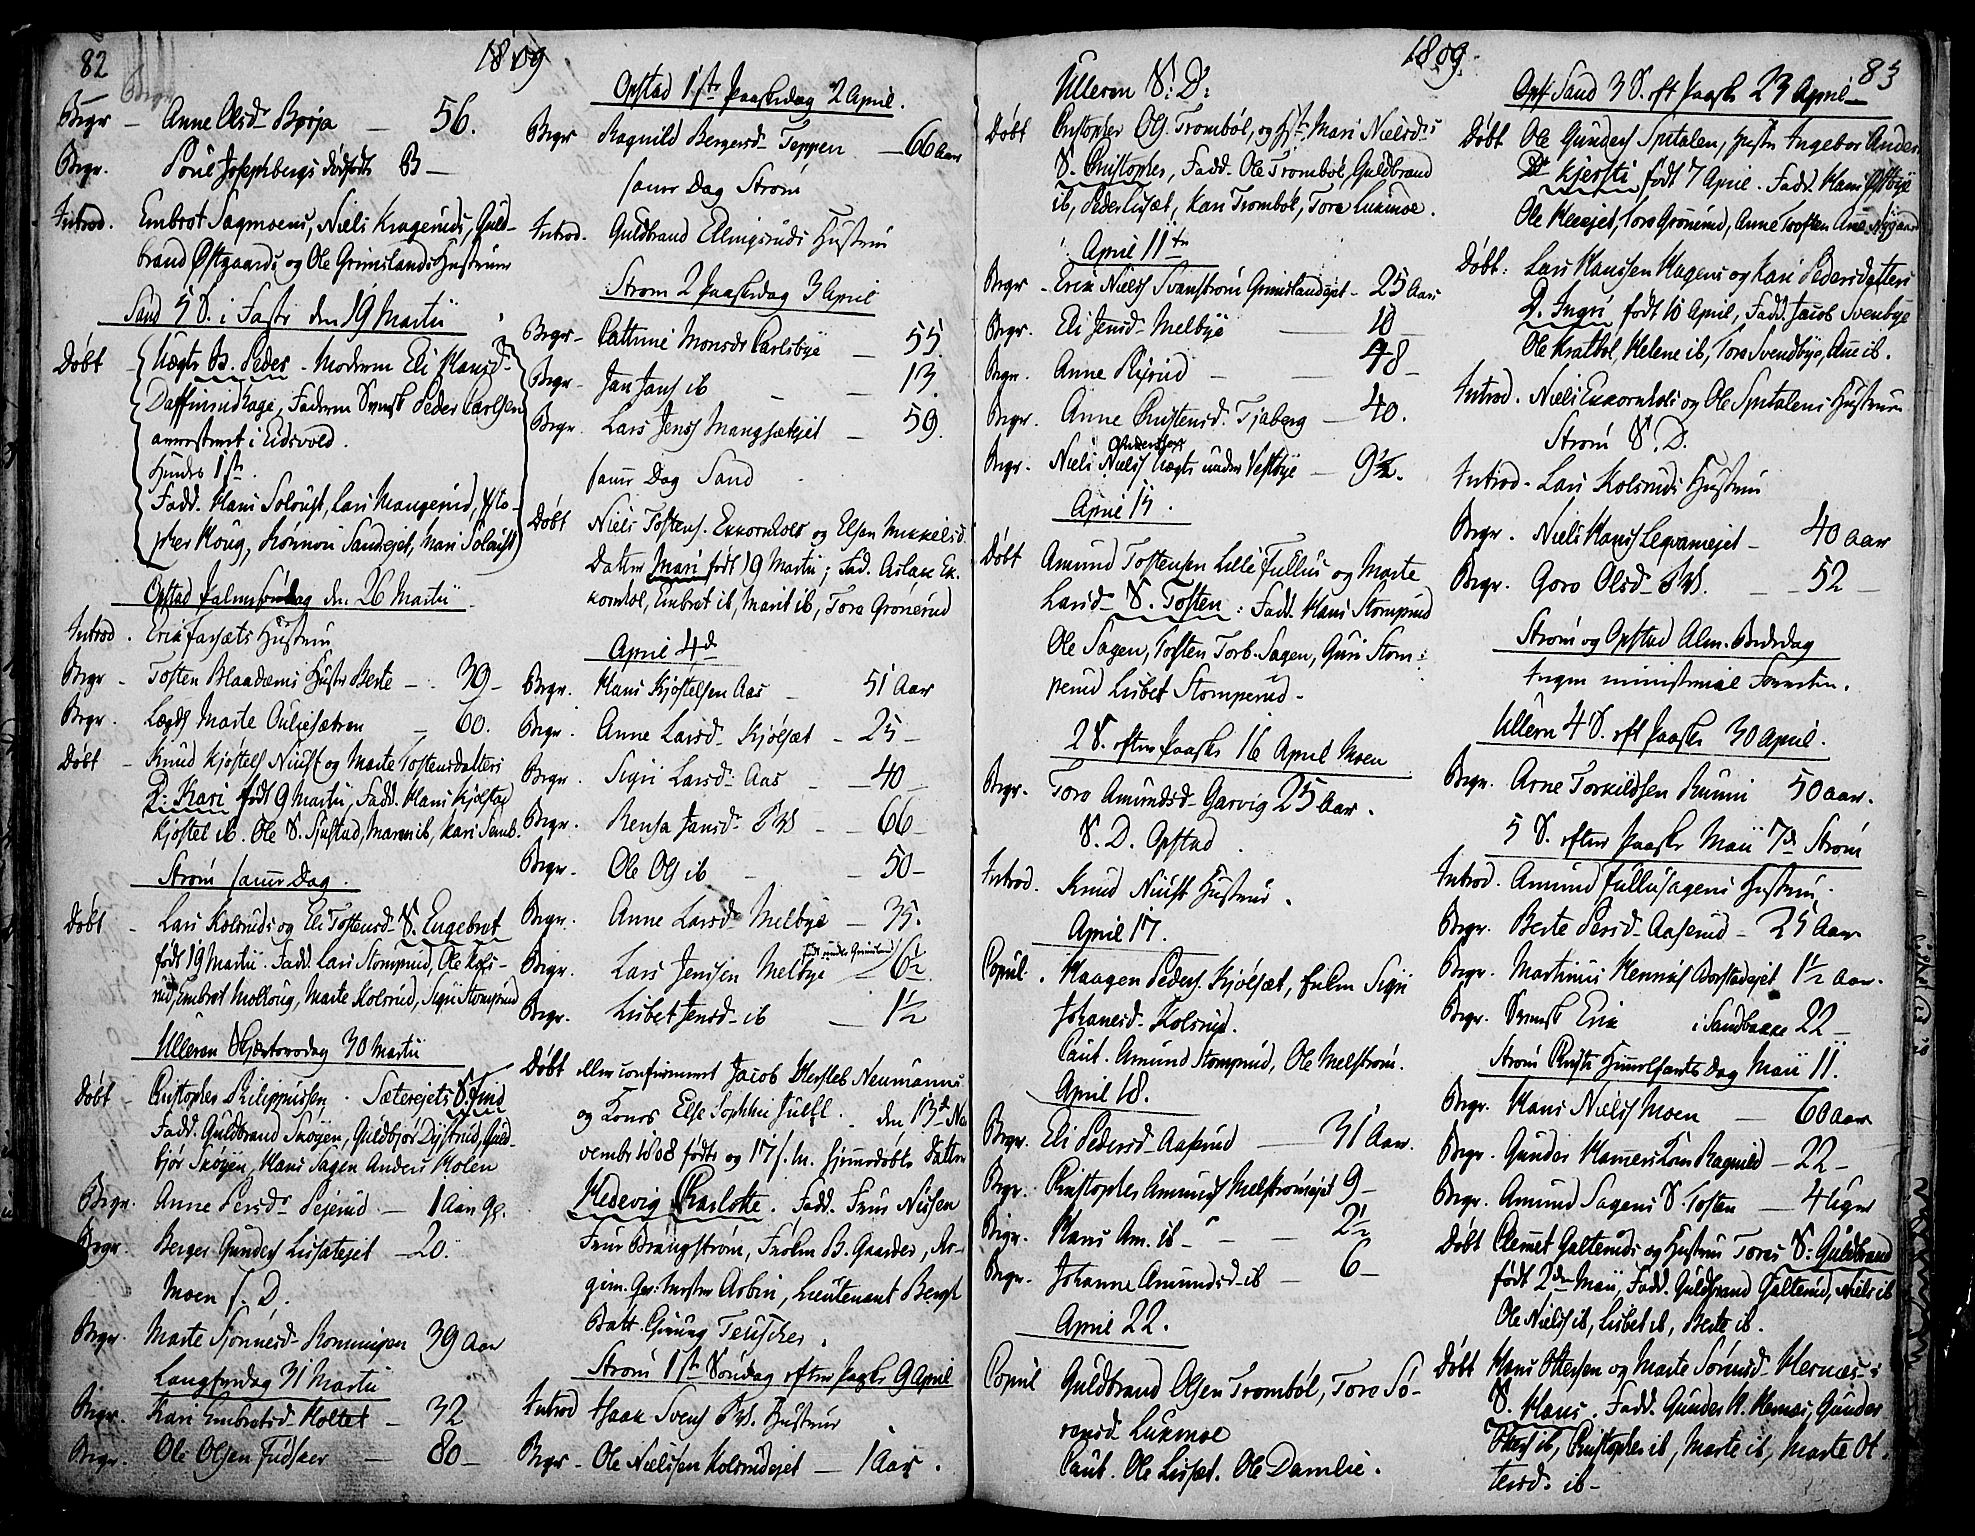 82
1809
Begr — Anne Olsd. Børja — 56.
Begr. Povel Josephbergs dødfødt B —
Introd. Embret Sagmoens, Niels Kragerüds, Guld-
brand Østgaards og Ole Grimslands Hustruer
Sand 5 S. i Faste den 19 Martii
Døbt Uægte B. Peder. Moderen Eli Hansd.
Faderen Svensk Peder Carlsen
arresteret i Eidsvold.
Hendes 1ste
Fadd. Hans Solbust, Lars Mangerud, Kristo-
pher Houg, Rønnou Sandejet, Mari Solbust
Opstad Palmesøndag den 26 Martii
Introd. Erik Farsæts Hustru
Begr — Tosten Blaadæmi Huster Berte — 39 —
Begr. Lægds Marte Ouliesætren — 60.
Døbt — Knud Kjøstels Niust og Marte Tostensdatters
D. Kari født 9 Martii, Fadd. Hans Kjølstad
Kjøstel ib. Ole S. Sjustad, Maren ib, Kari Semb.
Strøm samme Dag.
Døbt — Lars Kolsruds og Eli Tostensd. S. Engebret
født 19 Martii. Fadd. Lars Stomperud, Ole Kols-
rud, Embret Molloug, Marte Kolsrud, Sigri Stomperud
Ulleren Skjærtorsdag 30 Martii
Døbt Christopher Philippussen Sæterejets S. Find
Fadd. Guldbrand Skøyen, Guldbjør Dystrud, Guld-
bjør Skøyen, Hans Sagen Anders Holen
Begr. Anne Persdr Pejerud — 1 Aar gl.
Begr. Berger Gunders Lissætejet — 20.
Moen s. D.
Begr. Marte Simensd. Rommejen 39 Aar
Langfredag 31 Martii
Begr. Kari Embretsd. Holtet — 32
Begr. Ole Olsen Fudsaer — 80 —
Opstad 1ste Paaskedag 2 April.
Begr Ragnild Bergersd. Teppen — 66 Aar
samme Dag Strøm
Introd. Guldbrand Ellingsruds Hustru
Strøm 2 Paaskedag 3 April
Begr — Cathrine Monsdr Carlsbye — 55.
Begr — Jan Jans ib — 13.
Begr. Lars Jens Mangsætejet — 59.
samme Dag Sand
Døbt Niels Tostens. Ekornhols og Elsen Mikkelsd
Datter Mari født 19 Martii; Fad. Aslak Ek-
kornhol, Embret ib, Marit ib, Tora Grønerud
April 4de
Begr. Hans Kjøstelsen Aas — 51 Aar
Begr. Anne Larsd. Kjølsæt — 25 —
Begr. Sigri Larsd. Aas — 40 —
Begr. Rensa Jansd. — 66 —
Begr. Ole Ols ib — 50 —
Begr. Anne Larsd. Melbye — 35.
Begr. Lars Jenssen Melbye — 6½
Begr. Lisbet Jensd. ib — 1½
Døbt eller confirmeret Jacob Hersleb Neumanns
og Kones Else Sophie Juell. den 13de No-
vember 1808 fødte og 17 s. M. hjemmedøbte Datter
Hedevig Charlotte. Fadd. Frue Nissen
Frue Brangstrøm, Frøken B. Gaarder, Re-
gim. Qv. Mester Arbin, Lieutenant Bergh
Batt. Chirurg Teuscher.
Strøm 1ste Søndag efter Paaske 9 April
Introd Isaak Svens Hustrue
Begr — Ole Nielssen Kolsrudejet — 1 Aar.
1809.
83
Ulleren S: D:
Døbt Christopher Ols. Trombøl, og Hst. Mari Nielsdrs
S. Christopher, Fadd. Ole Trombøl, Guldbrand
ib, Peder Lissæt, Kari Trombøl, Tora Lukmoe.
April 11te
Begr — Erik Niels Svenstrøm Grimslandejet — 25 Aar
Begr. Eli Jensd. Melbye — 10 —
Begr. Anne Risrud — 48 —
Begr. Anne Christensd. Tjaberg — 40.
Begr. Niels Niels Uægte under Vestbye — 9½.
April 15.
Døbt Amund Tostensen Lille Fullus og Marte
Larsd. S. Tosten: Fadd. Hans Stomperud
Ole Sagen, Tosten Torb. Sagen, Guri Stom-
perud Lisbet Stomperud —
2 S. efter Paaske 16 April Moen
Begr. Toro Amundsd. Garvig 25 Aar.
S. D. Opstad
Introd. Knud Niust Hustrue.
April 17.
Copul. Haagen Peders. Kjølsæt, Enken Sigri
Johanesd. Kolsrud.
Caut. Amund Stomperud, Ole Melstrøm.
April 18.
Begr. Eli Pedersd. Aaserud — 31 Aar.
Begr. Christopher Amunds Melstrømejet 9 —
Begr. Hans Am. ib — 2½
Begr. Johanne Amundsd. ib — 6 —
April 22.
Copul Guldbrand Olsen Trombøl, Toro Sø-
rensd Lukmoe
Caut. Ole Lissæt. Ole Damlie.
Opst Sand 3 S. eft Paaske 23 April —
Døbt Ole Gunders Spitalen, Hustr Ingebor Anders
Dr Kjersti født 7 April. Fadd. Hans Østbye
Ole Heeejet, Tora Grønerud, Anne Trosten Anne Nygaard
Døbt: Lars Hanssen Hagens og Kari Pedersdatters
D. Ingri, født 10 April, Fadd. Jacob Svenbye
Ole Kratbøl, Helene ib, Tora Svendbye, Ane ib.
Introd. Niels Ekkornhols og Ole Spitalens Hustruer
Strøm S. D.
Introd. Lars Kolsruds Hustrue
Begr. Niels Hans Lervamejet — 40 Aar
Begr. Goro Olsd. — 52 —
Strøm og Opstad Alm. Bededag
Ingen ministerial Forretn.
Ullern 4 S. eft Paaske 30 April.
Begr. Arne Torkildsen Runni 50 Aar.
5 S. efter Paaske Maii 7de Strøm
Introd. Amund Fullusagens Hustrue.
Begr. Berte Persd. Aaserud — 25 Aar
Begr. Martinus Hennis Dorstadejet 1½ Aar.
Begr. Svensk Erik i Sandbakke 22 —
Strøm Christi Himmelfarts Dag Maii 11.
Begr. Hans Niels Moen — 60 Aar
Begr. Gunder Hamers Kone Ragnild — 22 —
Begr. Amund Sagens S. Tosten — 4 Uger
Døbt Clemet Galteruds og Hustrue Toras S: Guldbrand
født 2den Maii, Fadd. Guldbrand Galterud, Niels ib
Ole Niels ib, Lisbet ib, Berte ib.
Døbt Hans Ottersen og Marte Sørensd. Hernæs —
S. Hans. Fadd. Gunder H. Hernæs, Gunder
Otters ib, Christopher ib, Marte ib, Marte Ot-
tersd. ib —